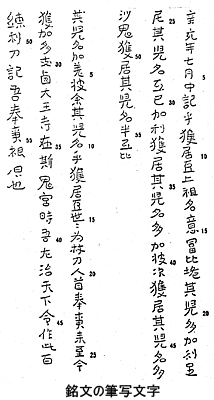 辛亥年七月中記乎獲居臣上祖名意富比垝其児多加利足
5 10 15 20
尼其児名弖已加利獲居其児名多加披次獲居其児名多
25 30 35 40 45
沙鬼獲居其児名半弖比
50
其児名加差披余其児名乎獲居臣世々為杖刀人首奉事来至今
5 10 15 20 25
獲加多支鹵大王寺在斯鬼宮時吾左治天下令作此百
30 35 40 45
練利刀記吾奉事根原也
50
銘文の筆写文字